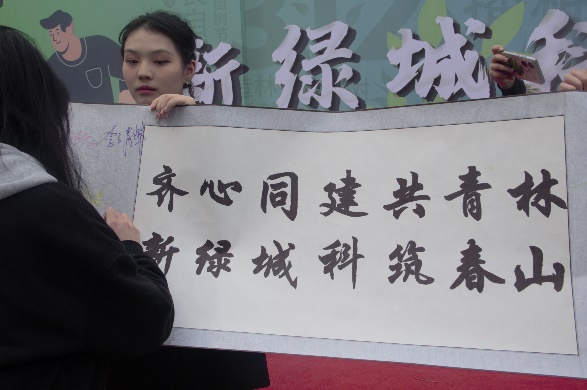 新绿城科
齐心同建共青林
新绿城科筑春山